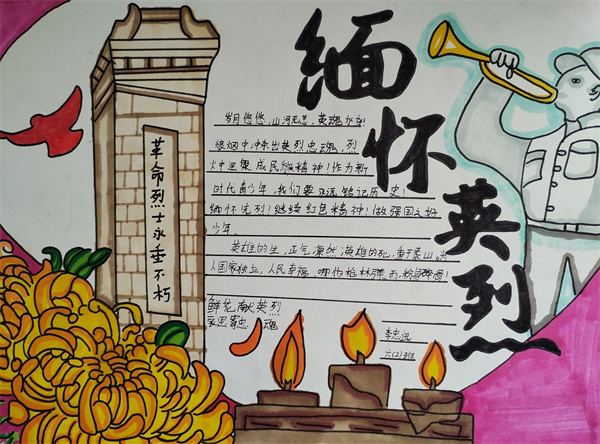 缅怀英烈
革命烈士永垂不朽
岁月悠悠,山河无恙,英魂永存
狼烟中,标出英烈忠魂,烈
火中涅槃成民族精神!作为新
时代青少年,我们要永远铭记历史!
缅怀先烈!继续红色精神!做强国之好
少年
英雄的生,正气凛然;英雄的死,重于泰山。为
人国家独立,人民幸福,哪怕枪林弹雨,粉身碎骨!
鲜花献英烈
忠魂
李忠
六(2)班